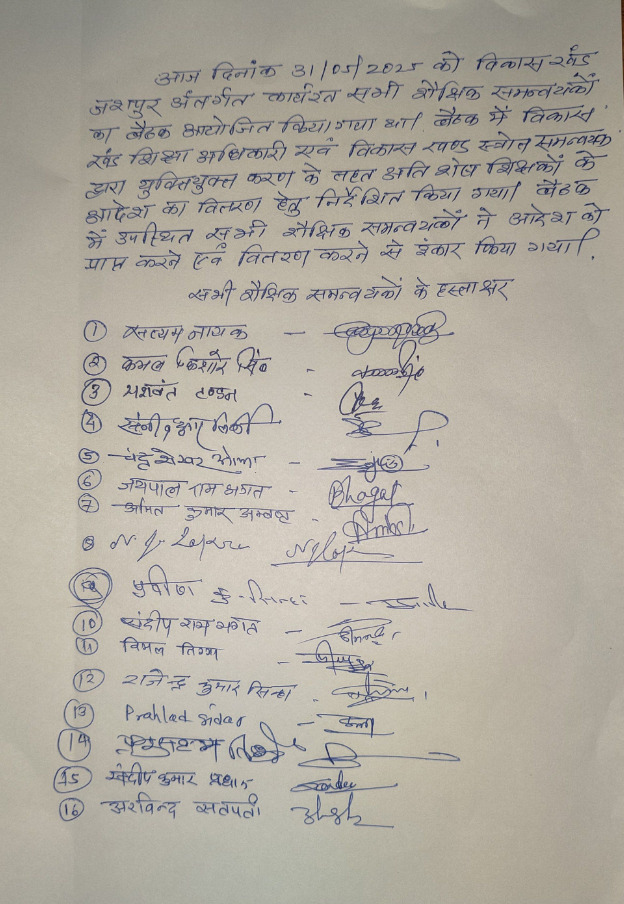 आज दिनांक 31/05/2025 को विकास खंड
जशपुर अंतर्गत कार्यरत सभी शैक्षिक समन्वयकों
का बैठक आयोजित किया गया था। बैठक में विकास
खंड शिक्षा अधिकारी एवं विकास खण्ड स्त्रोत समन्वयक
द्वारा युक्तियुक्त करण के तहत अति शेष शिक्षकों के
आदेश का वितरण हेतु निर्देशित किया गया। बैठक
में उपस्थित सभी शैक्षिक समन्वयकों ने आदेश को
प्राप्त करने एवं वितरण करने से इंकार किया गया।
सभी शैक्षिक समन्वयकों के हस्ताक्षर
① सत्यम नायक -
② कमल किशोर सिंह -
③ यशवंत टण्डन -
④
⑤ चंद्रशेखर -
⑥ जयपाल राम भगत - Bhagat
⑦ अमित कुमार अम्बष्ट -
8 N. J.
कु. सिन्हा -
⑩ संदीप राम भगत -
⑪ विमल तिग्गा -
⑫ राजेन्द्र कुमार सिन्हा -
⑬ Prahlad -
⑭
⑮ संदीप कुमार प्रधान
⑯ अरविन्द सतपती